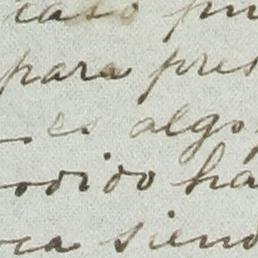 caso pu
para pres
es algo
odido ha
ca siend